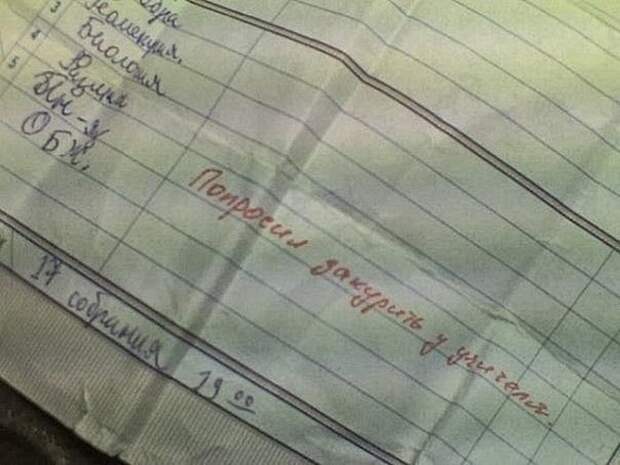 Геометрия.
3 Биология
4 Физика
5 Ин-я
ОБЖ.
Попросил закурить у учителя.
17 собрания 19 00